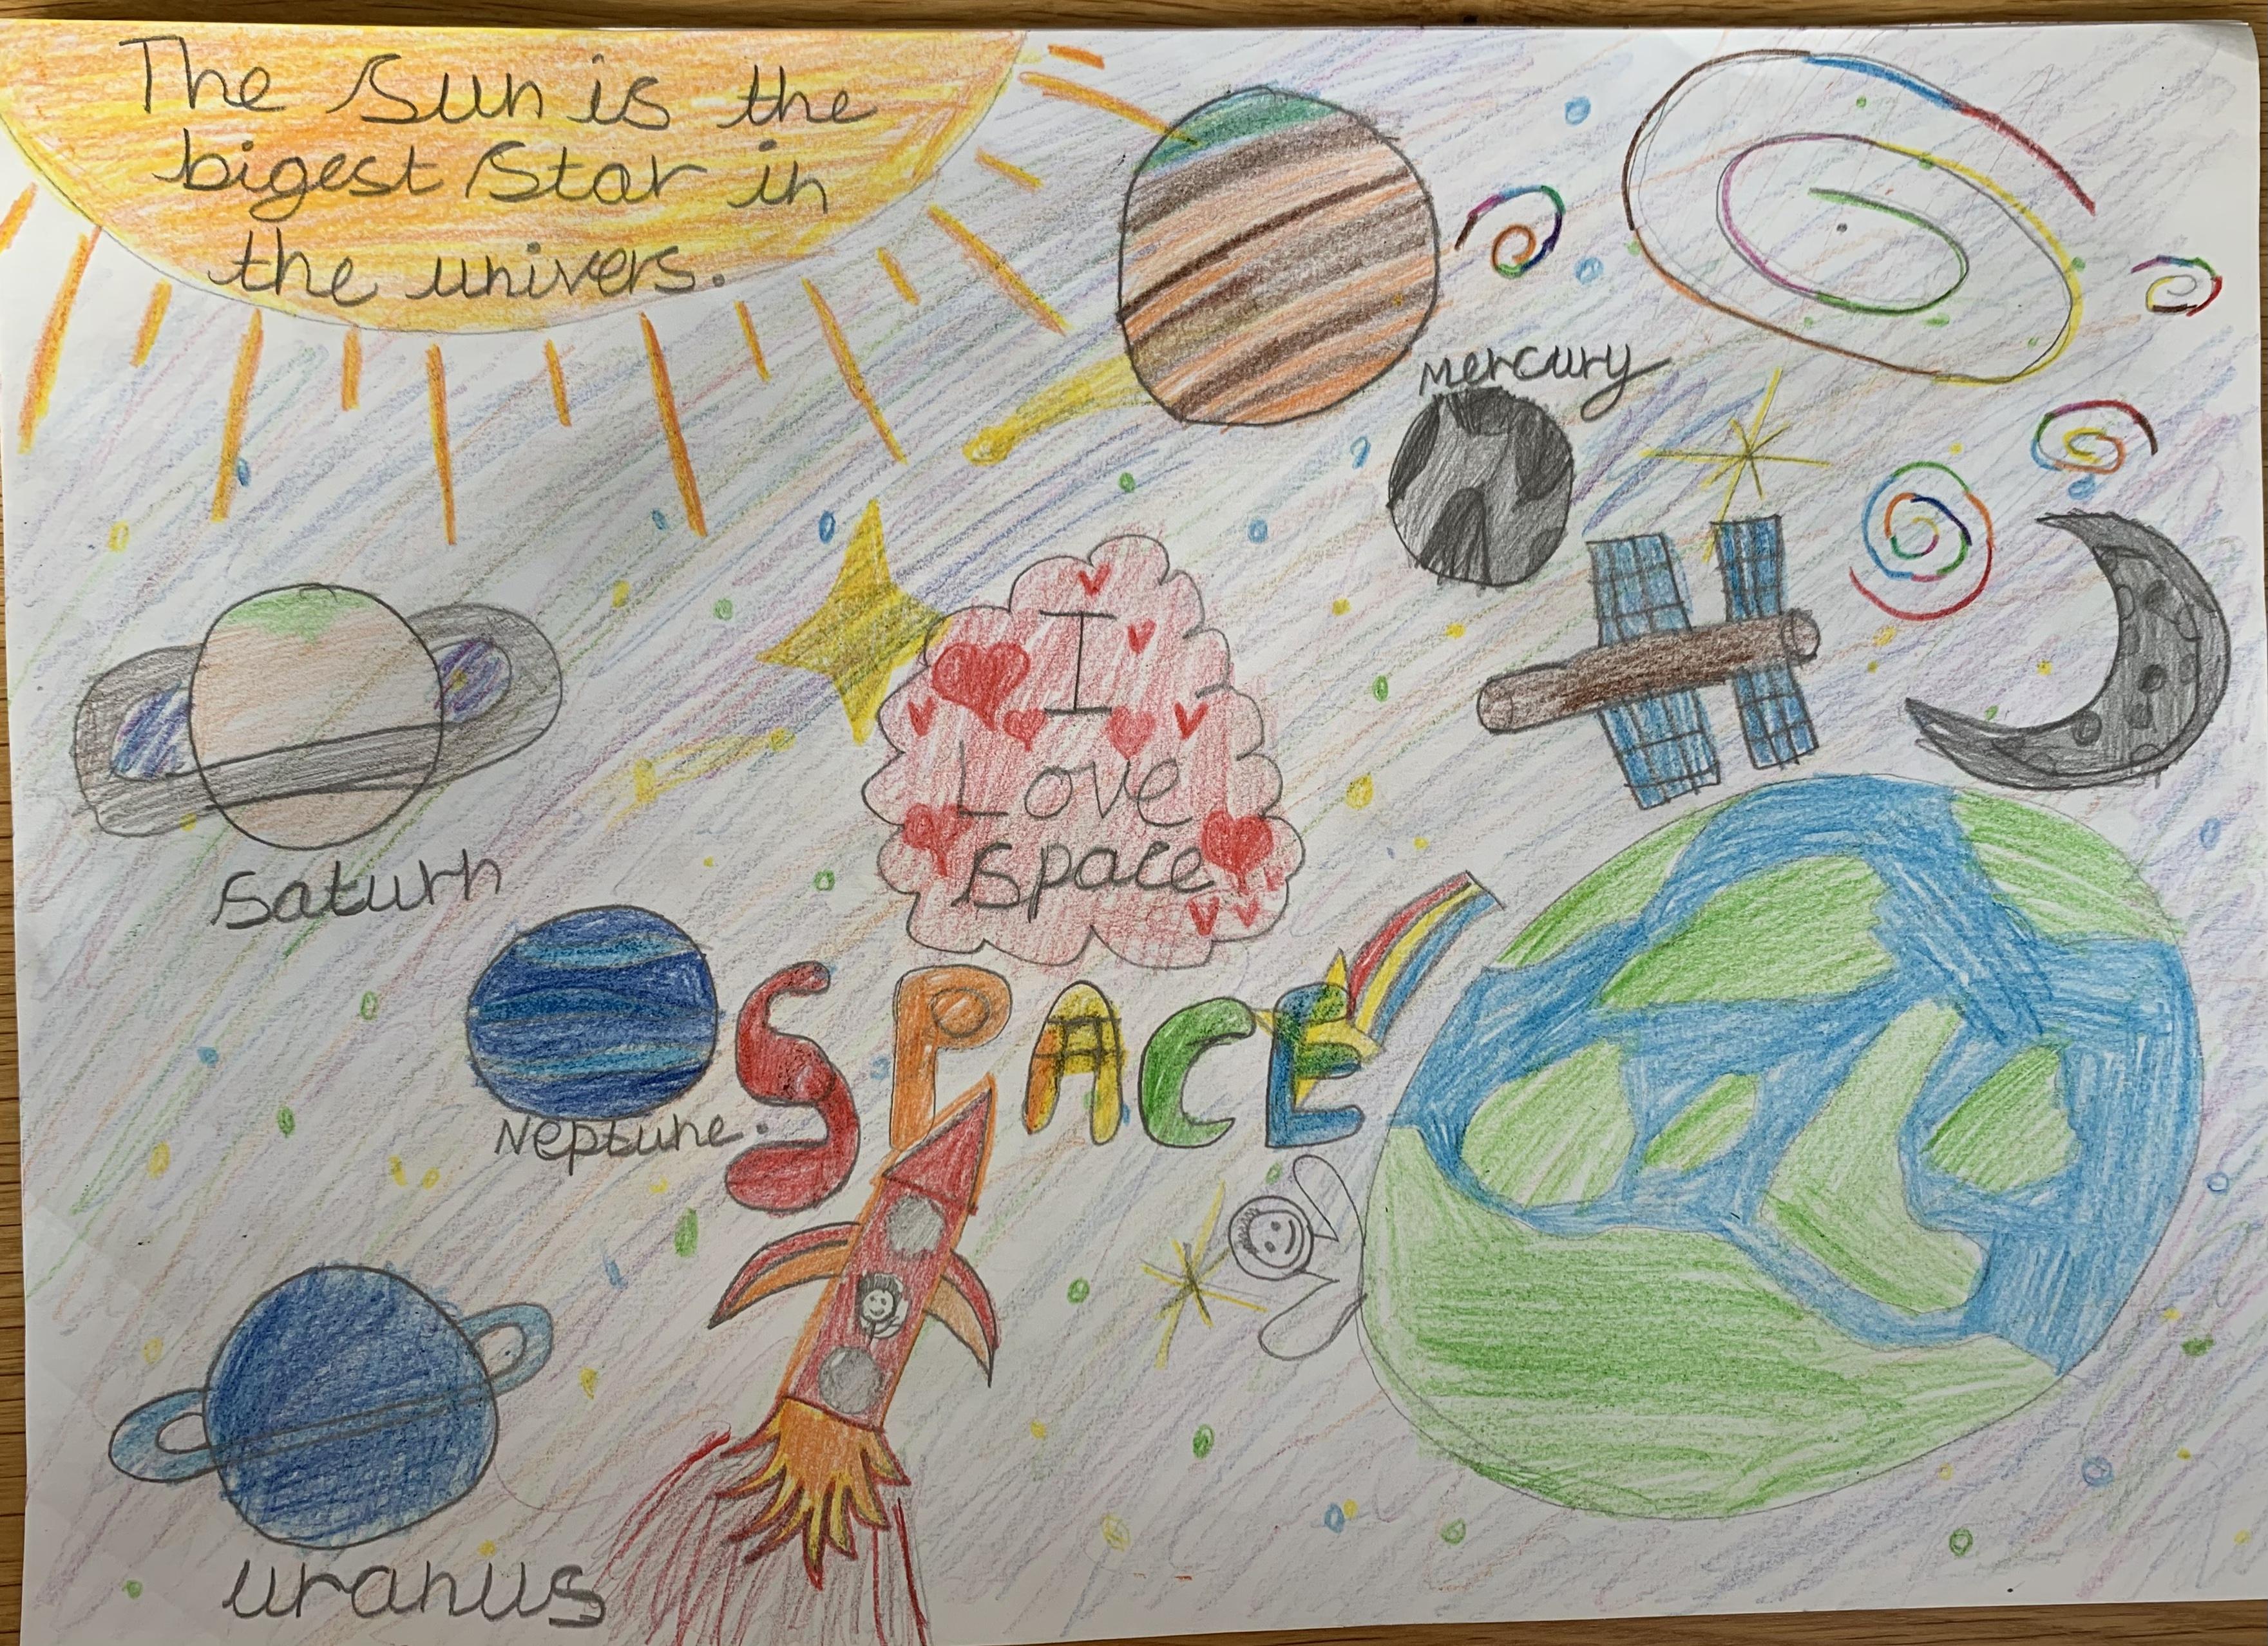 The Sun is the
bigest Star in
the univers.
Mercury
I
Love
Space
Saturn
SPACE
Neptune.
uranus